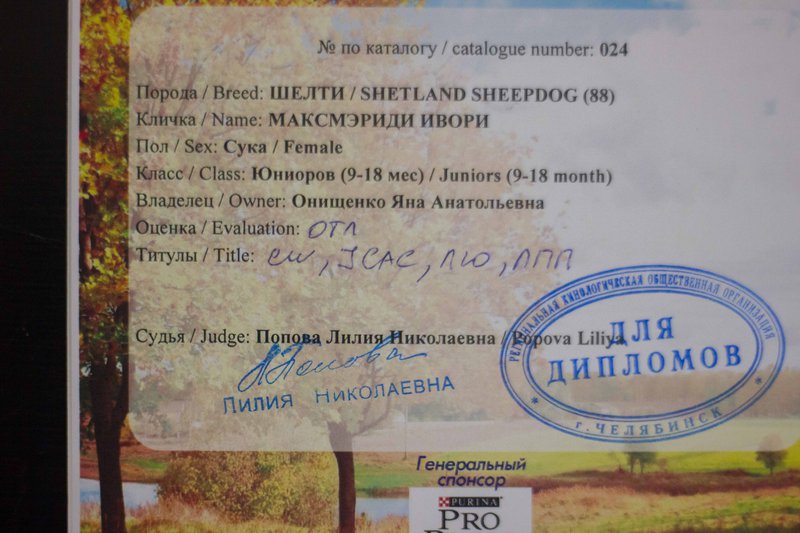 № по каталогу / catalogue number: 024
Порода / Breed: ШЕЛТИ / SHETLAND SHEEPDOG (88)
Кличка / Name: МАКСМЭРИДИ ИВОРИ
Пол / Sex: Сука / Female
Класс / Class: Юниоров (9-18 мес) / Juniors (9-18 month)
Владелец / Owner: Онищенко Яна Анатольевна
Оценка / Evaluation: ОТЛ
Титулы / Title: CW, JCAC, ЛЮ, ЛПП
Судья / Judge: Попова Лилия Николаевна / Popova Liliya
Попова
ЛИЛИЯ НИКОЛАЕВНА
РЕГИОНАЛЬНАЯ КИНОЛОГИЧЕСКАЯ ОБЩЕСТВЕННАЯ ОРГАНИЗАЦИЯ
ДЛЯ
ДИПЛОМОВ
г. ЧЕЛЯБИНСК
Генеральный
спонсор
PURINA
PRO